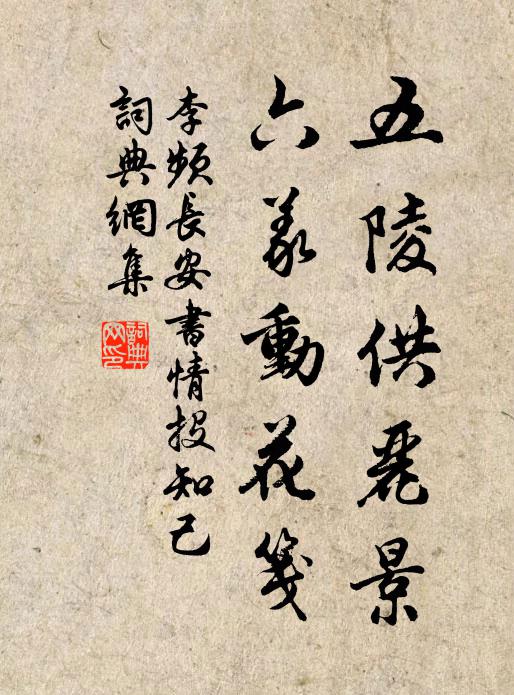 五陵供麗景
六義動花箋
李頻長安書情投知己
詞典網集
詞典網印